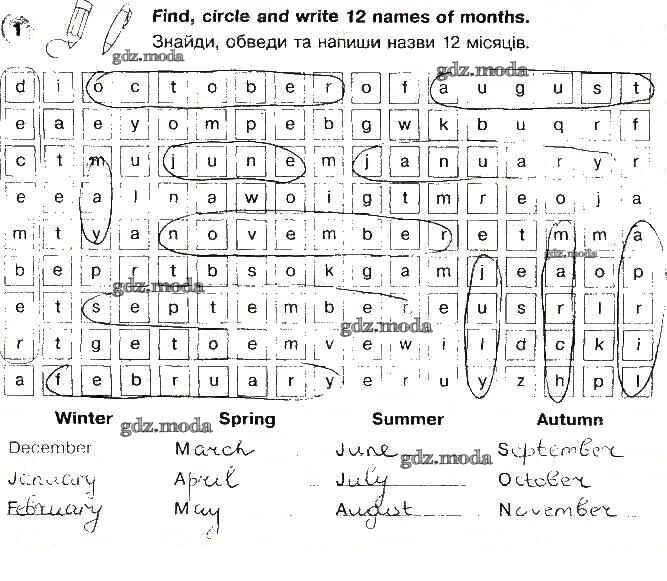 1 Find, circle and write 12 names of months.
Знайди, обведи та напиши назви 12 місяців.
gdz.moda
gdz.moda
d i o c t o b e r o f a u g u s t
e a e y o m p e b g w k b u q r f
c t m u j u n e m j a n u a r y r
e e a l n a w o i g t m r e o j a
m t y a n o v e m b e r e t m m a
gdz.moda
b e p r t b s o k g a m j e a o p
gdz.moda
e t s e p t e m b e r e u s r l r
gdz.moda
r t g e t o e m v e w i l d c k i
a f e b r u a r y e r u y z h p l
Winter Spring Summer Autumn
gdz.moda
December March June September
gdz.moda
January April July October
February May August November